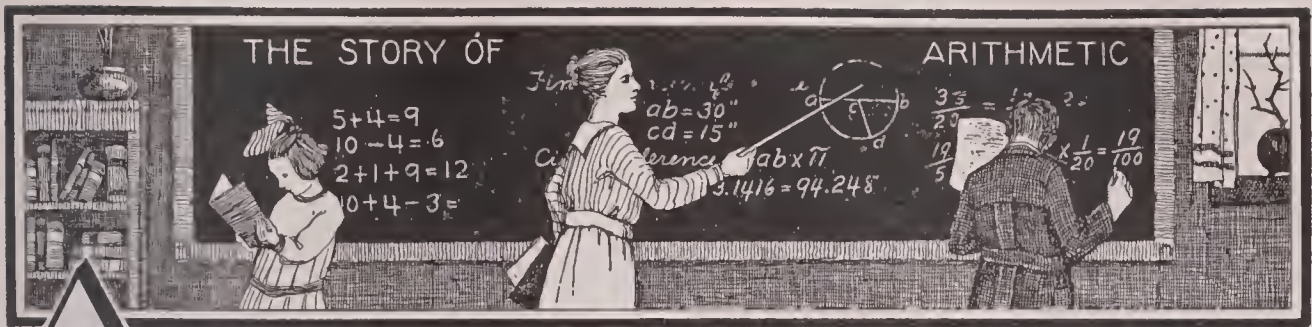 THE STORY OF ARITHMETIC
5+4=9
10-4=6
2+1+9=12
10+4-3=
Fin
ab=30"
cd=15"
Ci ference ab x π
3.1416=94.248
e
a c b
d
35/20 =
19/5 x 1/20 = 19/100
A